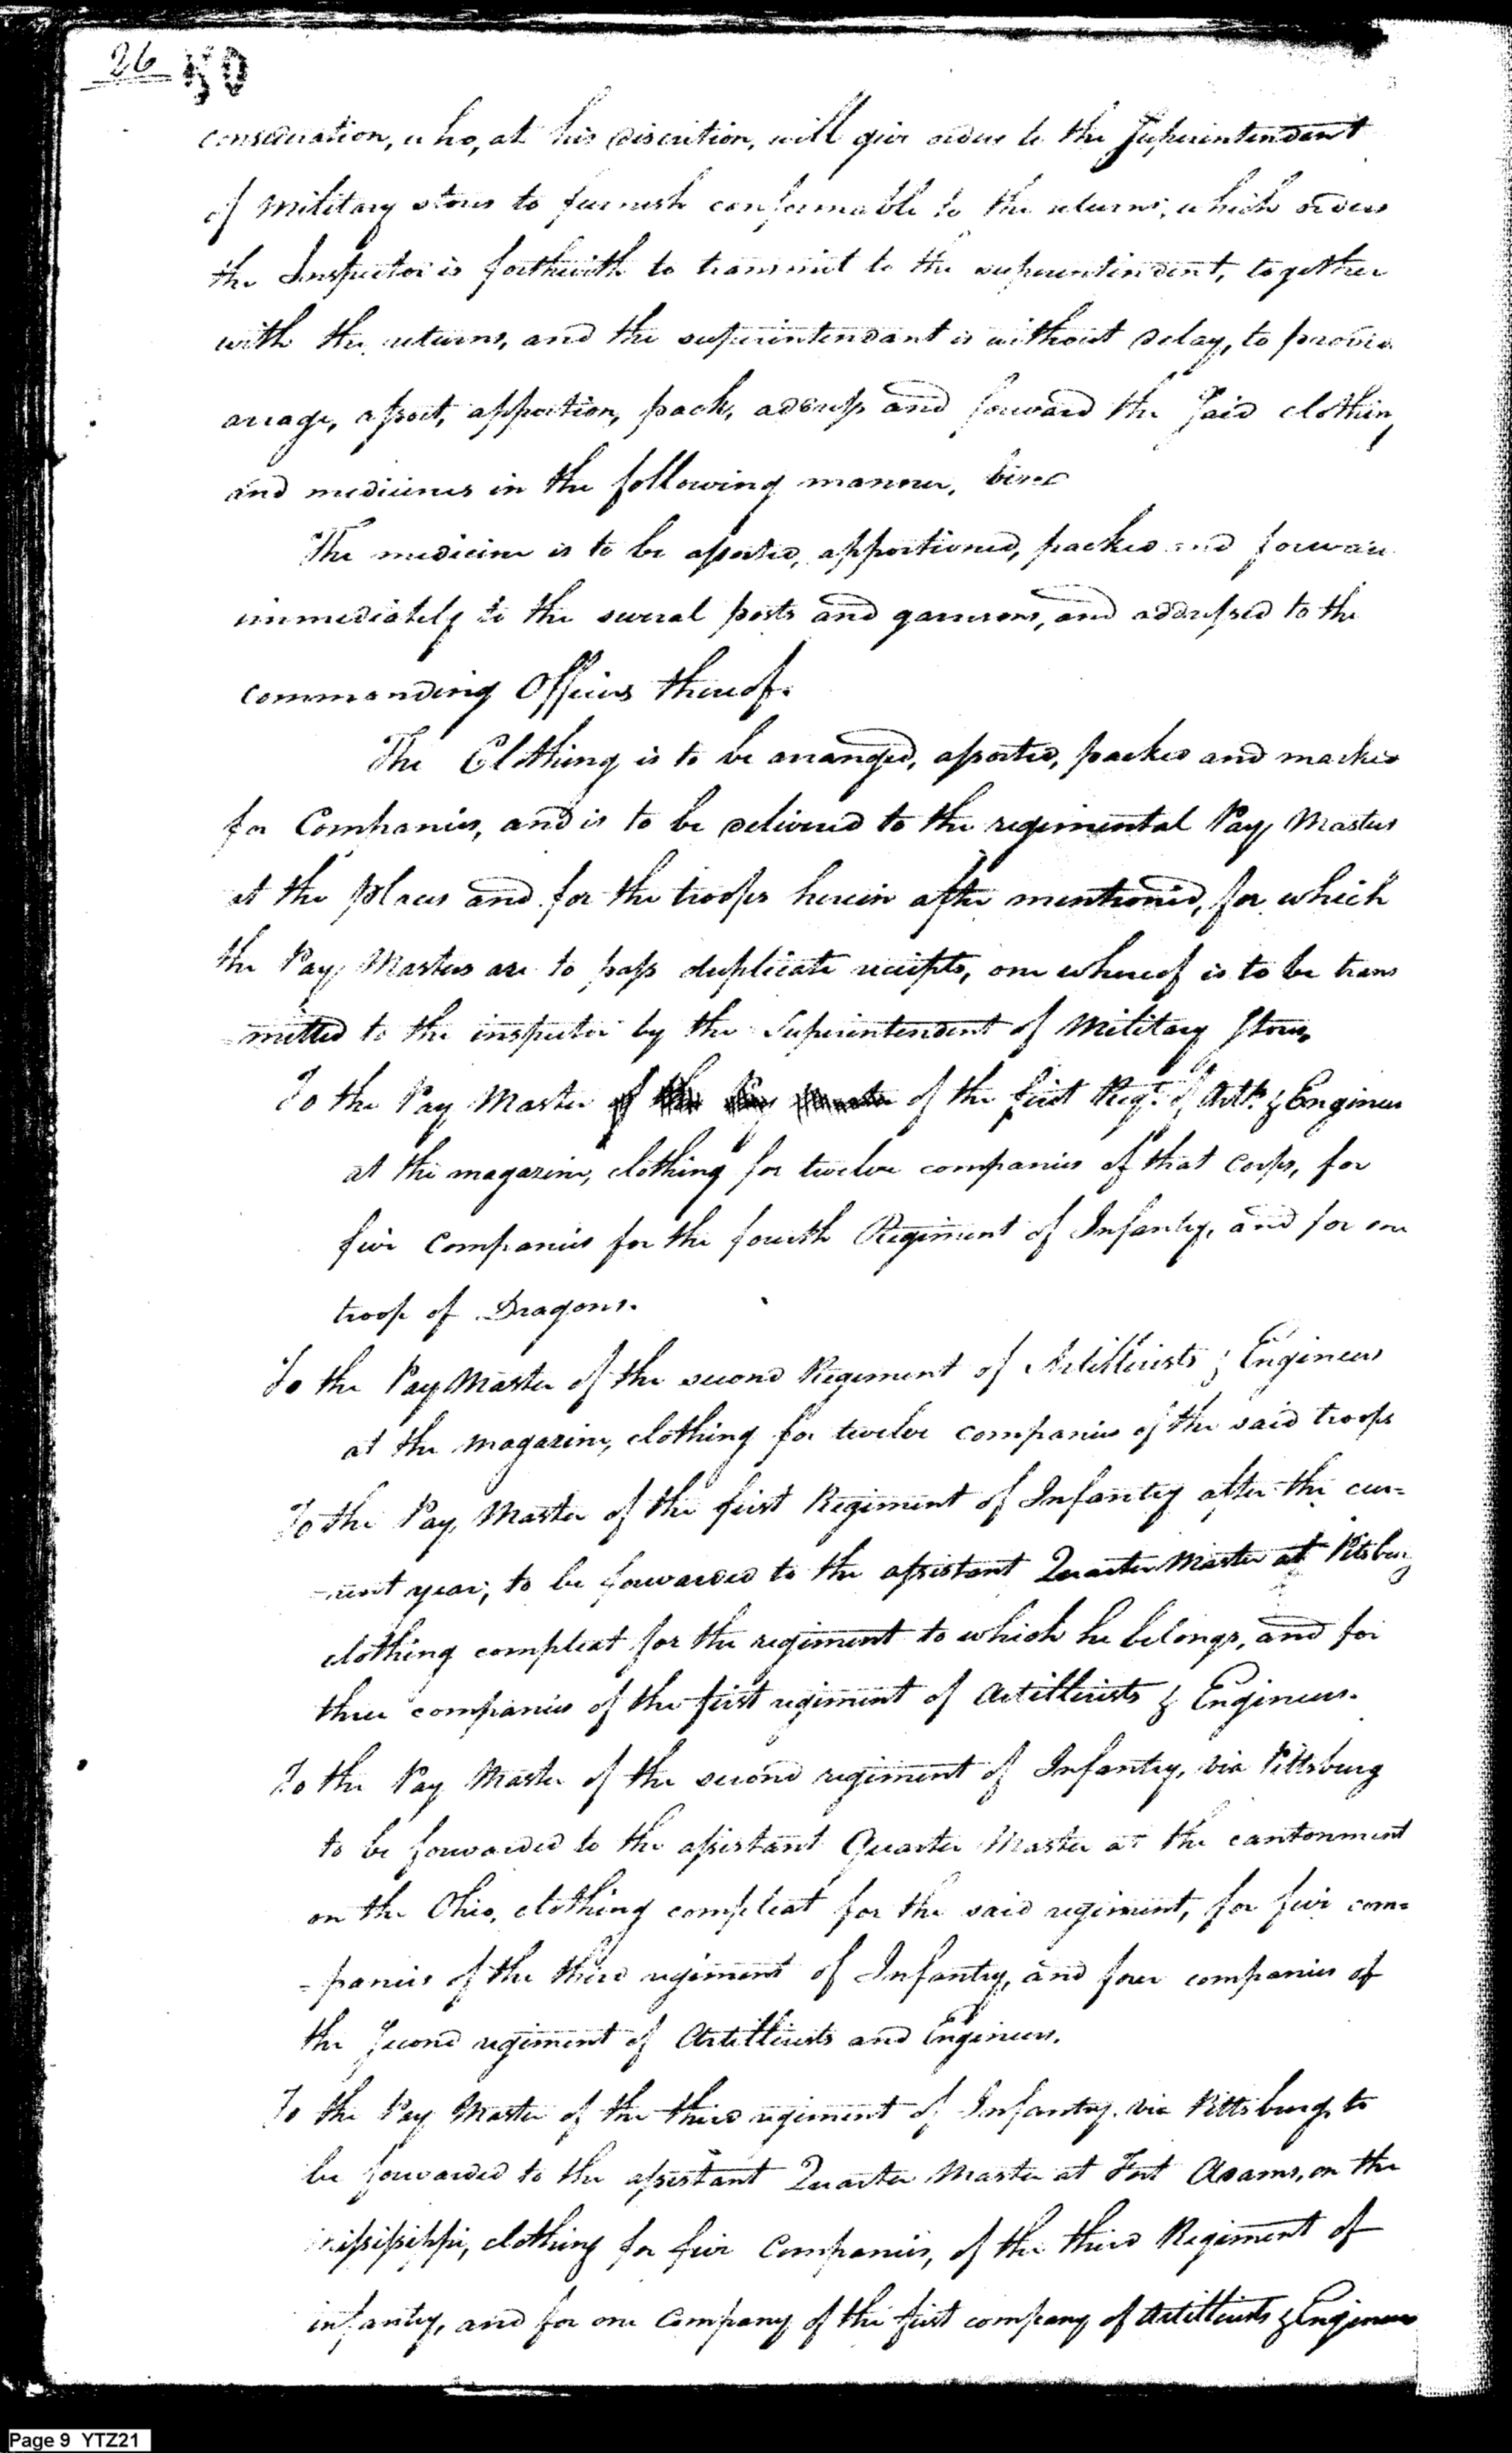 26 50
consideration, who, at his discretion, will give orders to the Superintendent
of Military stores to furnish conformable to the returns, which orders
the Inspector is forthwith to transmit to the superintendent, together
with the returns, and the superintendant is without delay, to provide
arrage, assort, apportion, pack, address and forward the said clothing
and medicines in the following manner,
The medicine is to be assorted, apportioned, packed and forward
immediately to the several posts and garrisons, and addressed to the
commanding Officers thereof.
The Clothing is to be arranged, assorted, packed and marked
for Companies, and is to be delivered to the regimental Pay Masters
at the places and for the troops herein after mentioned, for which
the Pay Masters are to pass duplicate receipts, one whereof is to be trans
-mitted to the inspector by the Superintendent of Military Stores,
To the Pay Master of the first Regt. of Artk. & Engineers
at the magazine, clothing for twelve companies of that Corps, for
five Companies for the fourth Regiment of Infantry, and for one
troop of Dragons.
To the Pay Master of the second Regiment of Artillerists & Engineers
at the magazine, clothing for twelve companies of the said troops
To the Pay Master of the first Regiment of Infantry after the cur=
-rent year, to be forwarded to the assistant Quarter Master at Pitsburg
clothing compleat for the regiment to which he belongs, and for
three companies of the first regiment of Artillerists & Engineers.
To the Pay Master of the second regiment of Infantry, via Pittsburg
to be forwarded to the assistant Quarter Master at the cantonment
on the Ohio, clothing compleat for the said regiment, for five com=
=panies of the third regiment of Infantry, and four companies of
the second regiment of Artillerists and Engineers.
To the Pay Master of the third regiment of Infantry via Pittsburg to
be forwarded to the assistant Quarter Master at Fort Adams, on the
Missisippi, clothing for five Companies, of the third Regiment of
infantry, and for one Company of the first company of Artillerists & Engineers
Page 9 YTZ21